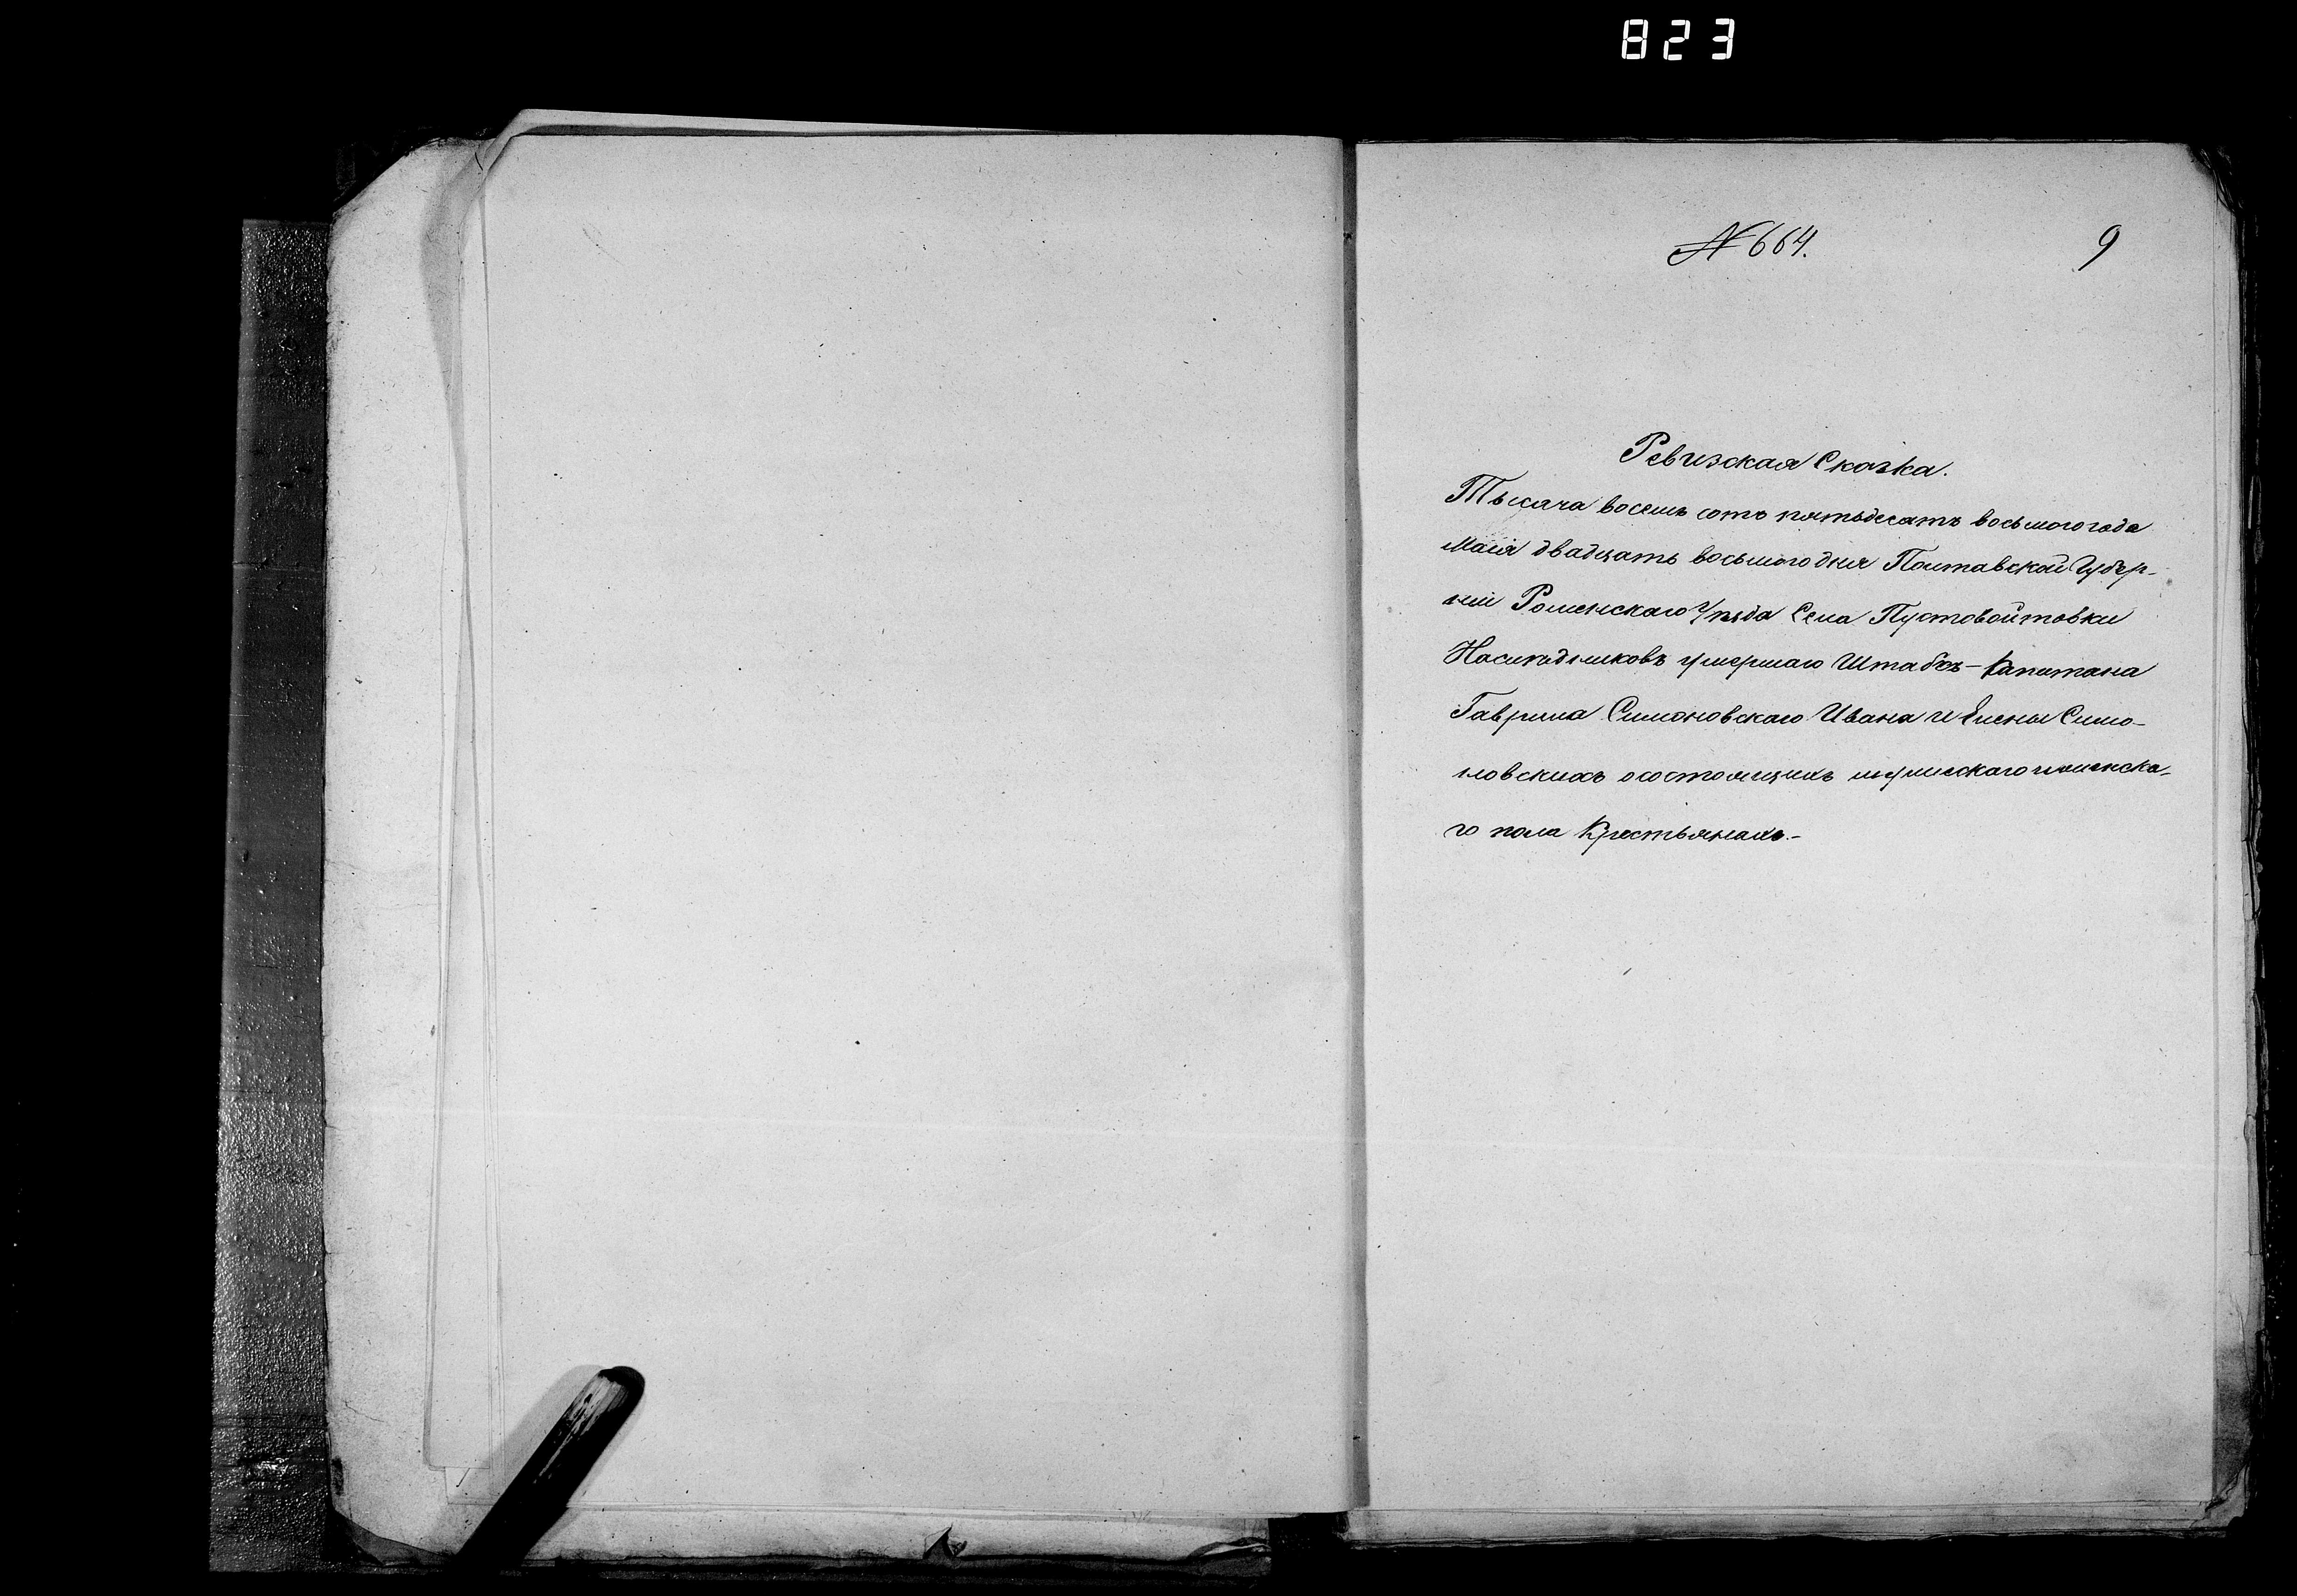 823
№ 664.
9
Ревизская Сказка.
Тысяча восемь сотъ пятьдесятъ восьмого года
Маія двадцать восьмого дня Полтавской Губер-
ніи Роменскаго Уѣзда Села Пустовойтовки
Наслѣдниковъ умершаго Штабсъ-Капитана
Гаврила Симоновскаго Ивана и Елены Симо-
новскихъ о состоящихъ мужескаго и женска-
го пола Крестьянахъ.-